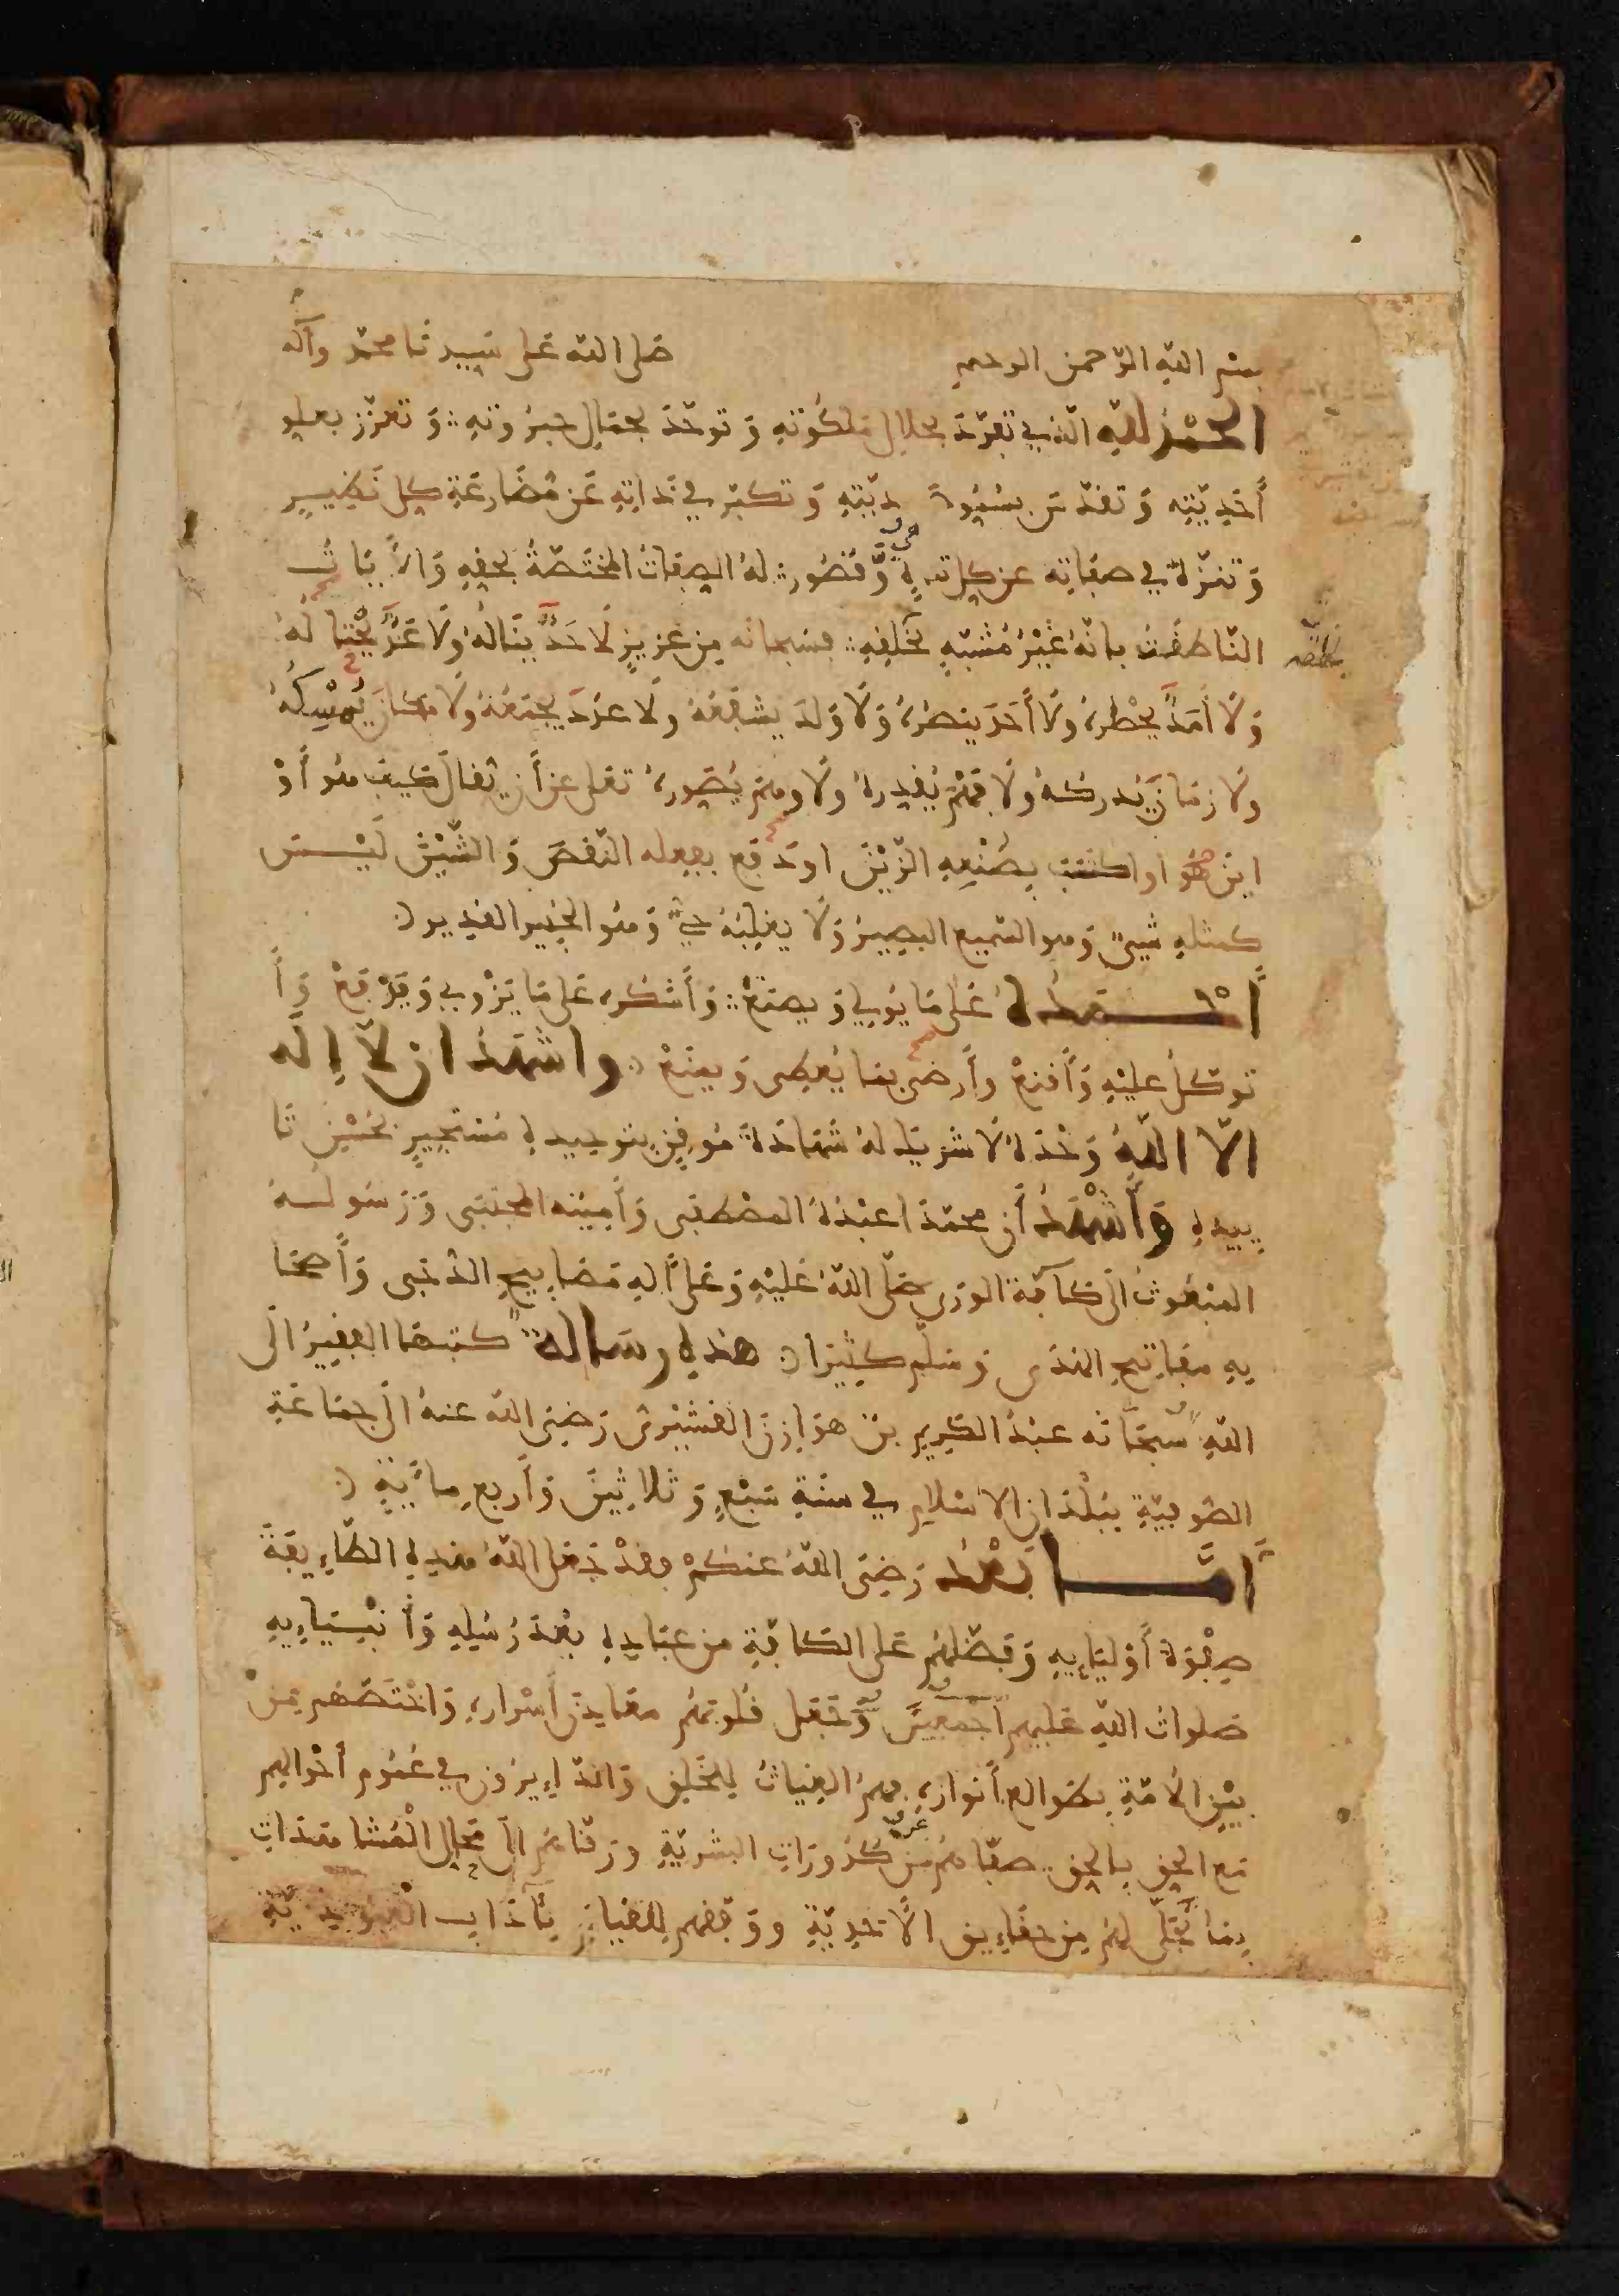 بسم الله الرحمن الرحيم صلى الله على سيدنا محمد وآله
الحمد لله الذي تفرد بجلال ملكوته وتوحد بجمال جبروته وتعزز بعلو
أحديته وتقدس بسمو صمديته وتكبر في ذاته عن مضارعة كل نظير
وتنزه في صفاته عن كل وقصور له الصفات المختصة بحقه والآيات
الناطقة بأنه غير مشبه بخلقه فسبحانه من عزيز لا حد يناله ولا عد يحتاله
ولا أمد يحصره ولا أحد ينصره ولا ولد يشفعه ولا عدد يجمعه ولا مكان يمسكه
ولا زمان يدركه ولا فهم يقدره ولا وهم يصوره تعلى عن أن يقال كيف هو أو
اين هو او اكتسب بصنعه الزين او دفع بفعله النقص والشين ليس
كمثله شيء وهو السميع البصير ولا يغلبه حي وهو الخبير القدير
أحمده على ما يولي ويصنع وأشكره على ما يزوي ويدفع وأ
توكل عليه وأقنع وأرضى بما يعطي ويمنع واشهد ان لا إله
الا الله وحده لا شريك له شهادة موقن بتوحيده مستجير بحسن تا
ييده وأشهد أن محمدا عبده المصطفى وأمينه المجتبى ورسوله
المبعوث الى كافة الورى صلى الله عليه وعلى آله مصابيح الدجى وأصحا
به مفاتيح الهدى وسلم كثيرا هذه رسالة كتبها الفقير الى
الله سبحانه عبد الكريم بن هوازن القشيري رضي الله عنه الى جماعة
الصوفية ببلدان الاسلام في سنة سبع وثلاثين وأربع مأية
أما بعد رضي الله عنكم فقد جعل الله هذه الطايفة
صفوة أوليايه وفضلهم على الكافة من عباده بعد رسله وأنبيايه
صلوات الله عليهم أجمعين وجعل قلوبهم معادن أسراره واختصهم من
بين الأمة بطوالع أنواره فهم الغياث للخلق والدايرون في عموم أحوالهم
مع الحق بالحق صفاهم من كدورات البشرية ورقاهم الى محال المشاهدات
بما تجلى لهم من حقايق الأحدية ووفقهم للقيام بآداب العبودية